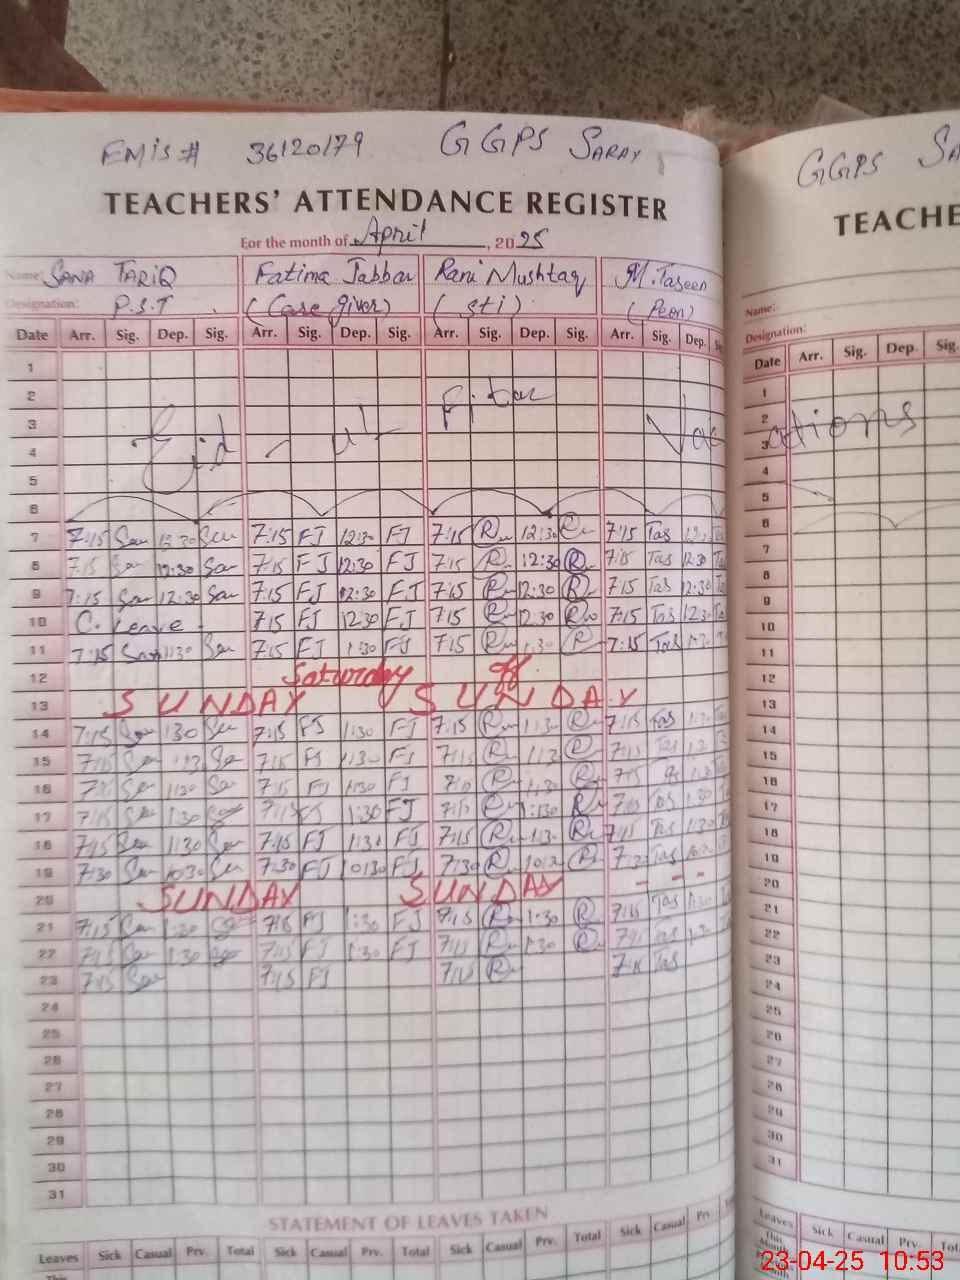 EMIS# 36120179 GGPS SARAY
TEACHERS' ATTENDANCE REGISTER
For the month of April, 2025
Name: SANA TARIQ Fatima Jabbar Rani Mushtaq M.Taseen
Designation: P.S.T (Care giver) (sti) (Peon)
Date Arr. Sig. Dep. Sig. Arr. Sig. Dep. Sig. Arr. Sig. Dep. Sig. Arr. Sig. Dep.
1
2
3
4
5
6
Eid - ul - Fitar Vacations
7 7:15 San 12:30 San 7:15 FJ 12:30 FJ 7:15 R 12:30 R 7:15 Tas
8 7:15 San 12:30 San 7:15 FJ 12:30 FJ 7:15 R 12:30 R 7:15 Tas 12:30
9 7:15 San 12:30 San 7:15 FJ 12:30 FJ 7:15 R 12:30 R 7:15 Tas 12:30
10 C. Leave 7:15 FJ 12:30 FJ 7:15 R 12:30 R 7:15 Tas 12:30
11 7:15 San 1:30 San 7:15 FJ 1:30 FJ 7:15 R 1:30 R 7:15 Tas 1:30
12 Saturday off
13 SUNDAY SUNDAY
14 7:15 San 1:30 San 7:15 FJ 1:30 FJ 7:15 R 1:30 R 7:15 Tas
15 7:15 San San 7:15 FJ 1:30 FJ 7:15 R R 7:15 Tas
16 San 1:30 San 7:15 FJ 1:30 FJ R 1:30 R 7:15
17 7:15 San 1:30 7:15 FJ 1:30 FJ 7:15 R 1:30 R Tas 1:30
18 7:15 San 1:30 San 7:15 FJ 1:30 FJ 7:15 R 1:30 R 7:15 Tas 1:30
19 7:30 San 10:30 San 7:30 FJ 10:30 FJ 7:30 R R Tas
20 SUNDAY SUNDAY - - -
21 7:15 San 1:30 7:15 FJ 1:30 FJ 7:15 R 1:30 R 7:15 Tas 1:30
22 7:15 San 1:30 7:15 FJ 1:30 FJ 7:15 R 1:30 R 7:15 Tas
23 7:15 San 7:15 FJ 7:15 R 7:15 Tas
24
25
26
27
28
29
30
31
STATEMENT OF LEAVES TAKEN
Leaves Sick Casual Prv. Total Sick Casual Prv. Total Sick Casual Prv. Total Sick Casual Prv.
This
GGPS SA
TEACHE
Name:
Designation:
Date Arr. Sig. Dep. Sig.
1
2
3
4
5
6
7
8
9
10
11
12
13
14
15
16
17
18
19
20
21
22
23
24
25
26
27
28
29
30
31
Leaves Sick Casual Prv. Tot
This
Month
23-04-25 10:53